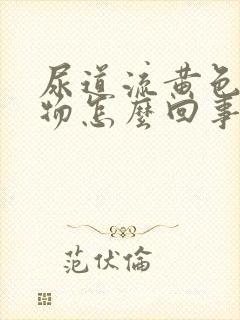 尿道流黄色
物怎麼回事
范伏倫